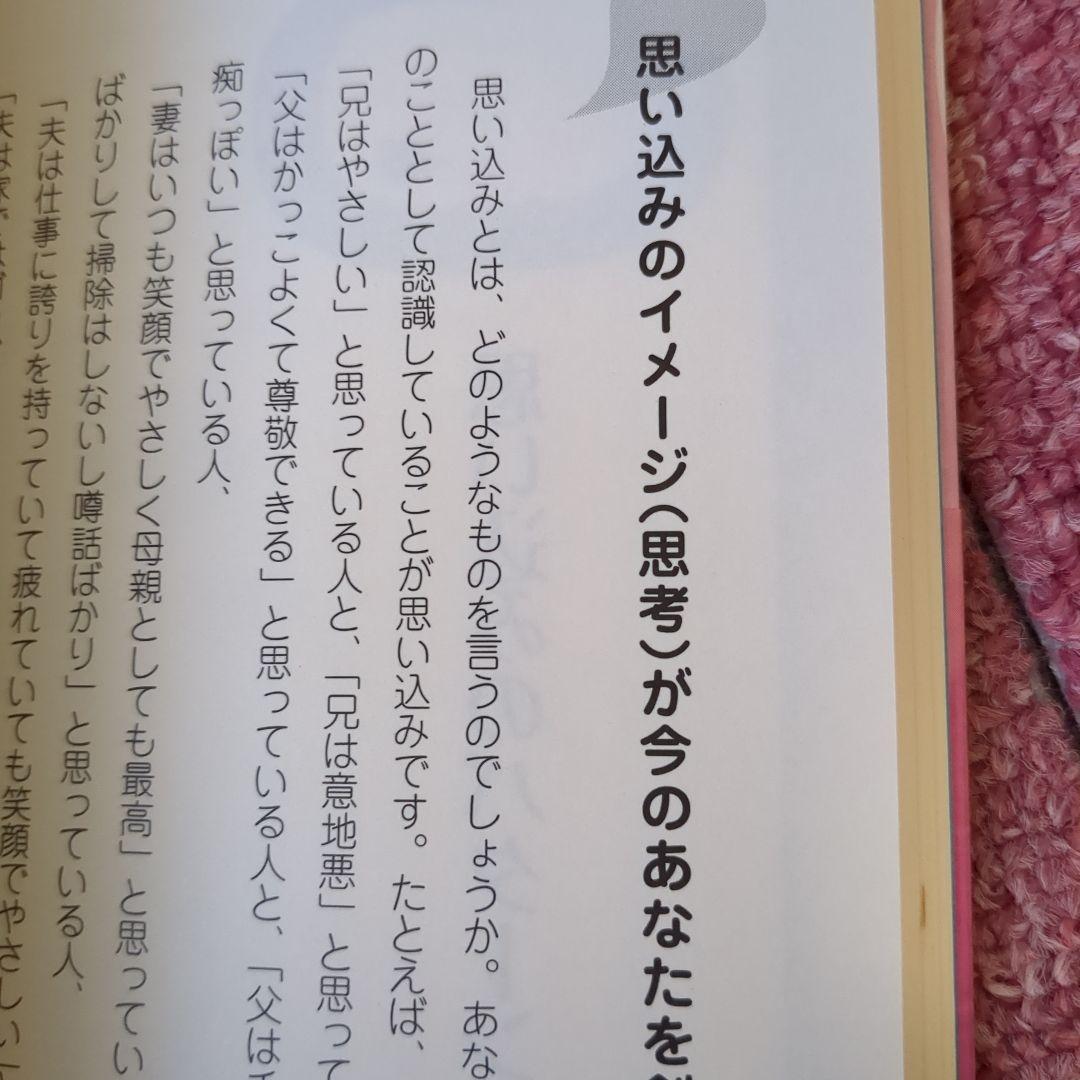 思い込みのイメージ（思考）が今のあなたを
思い込みとは、どのようなものを言うのでしょうか。あな
のこととして認識していることが思い込みです。たとえば、
「兄はやさしい」と思っている人と、「兄は意地悪」と思って
「父はかっこよくて尊敬できる」と思っている人と、「父は
痴っぽい」と思っている人、
「妻はいつも笑顔でやさしく母親としても最高」と思ってい
ばかりして掃除はしないし噂話ばかり」と思っている人、
「夫は仕事に誇りを持っていて疲れていても笑顔でやさしい」
「夫は家では